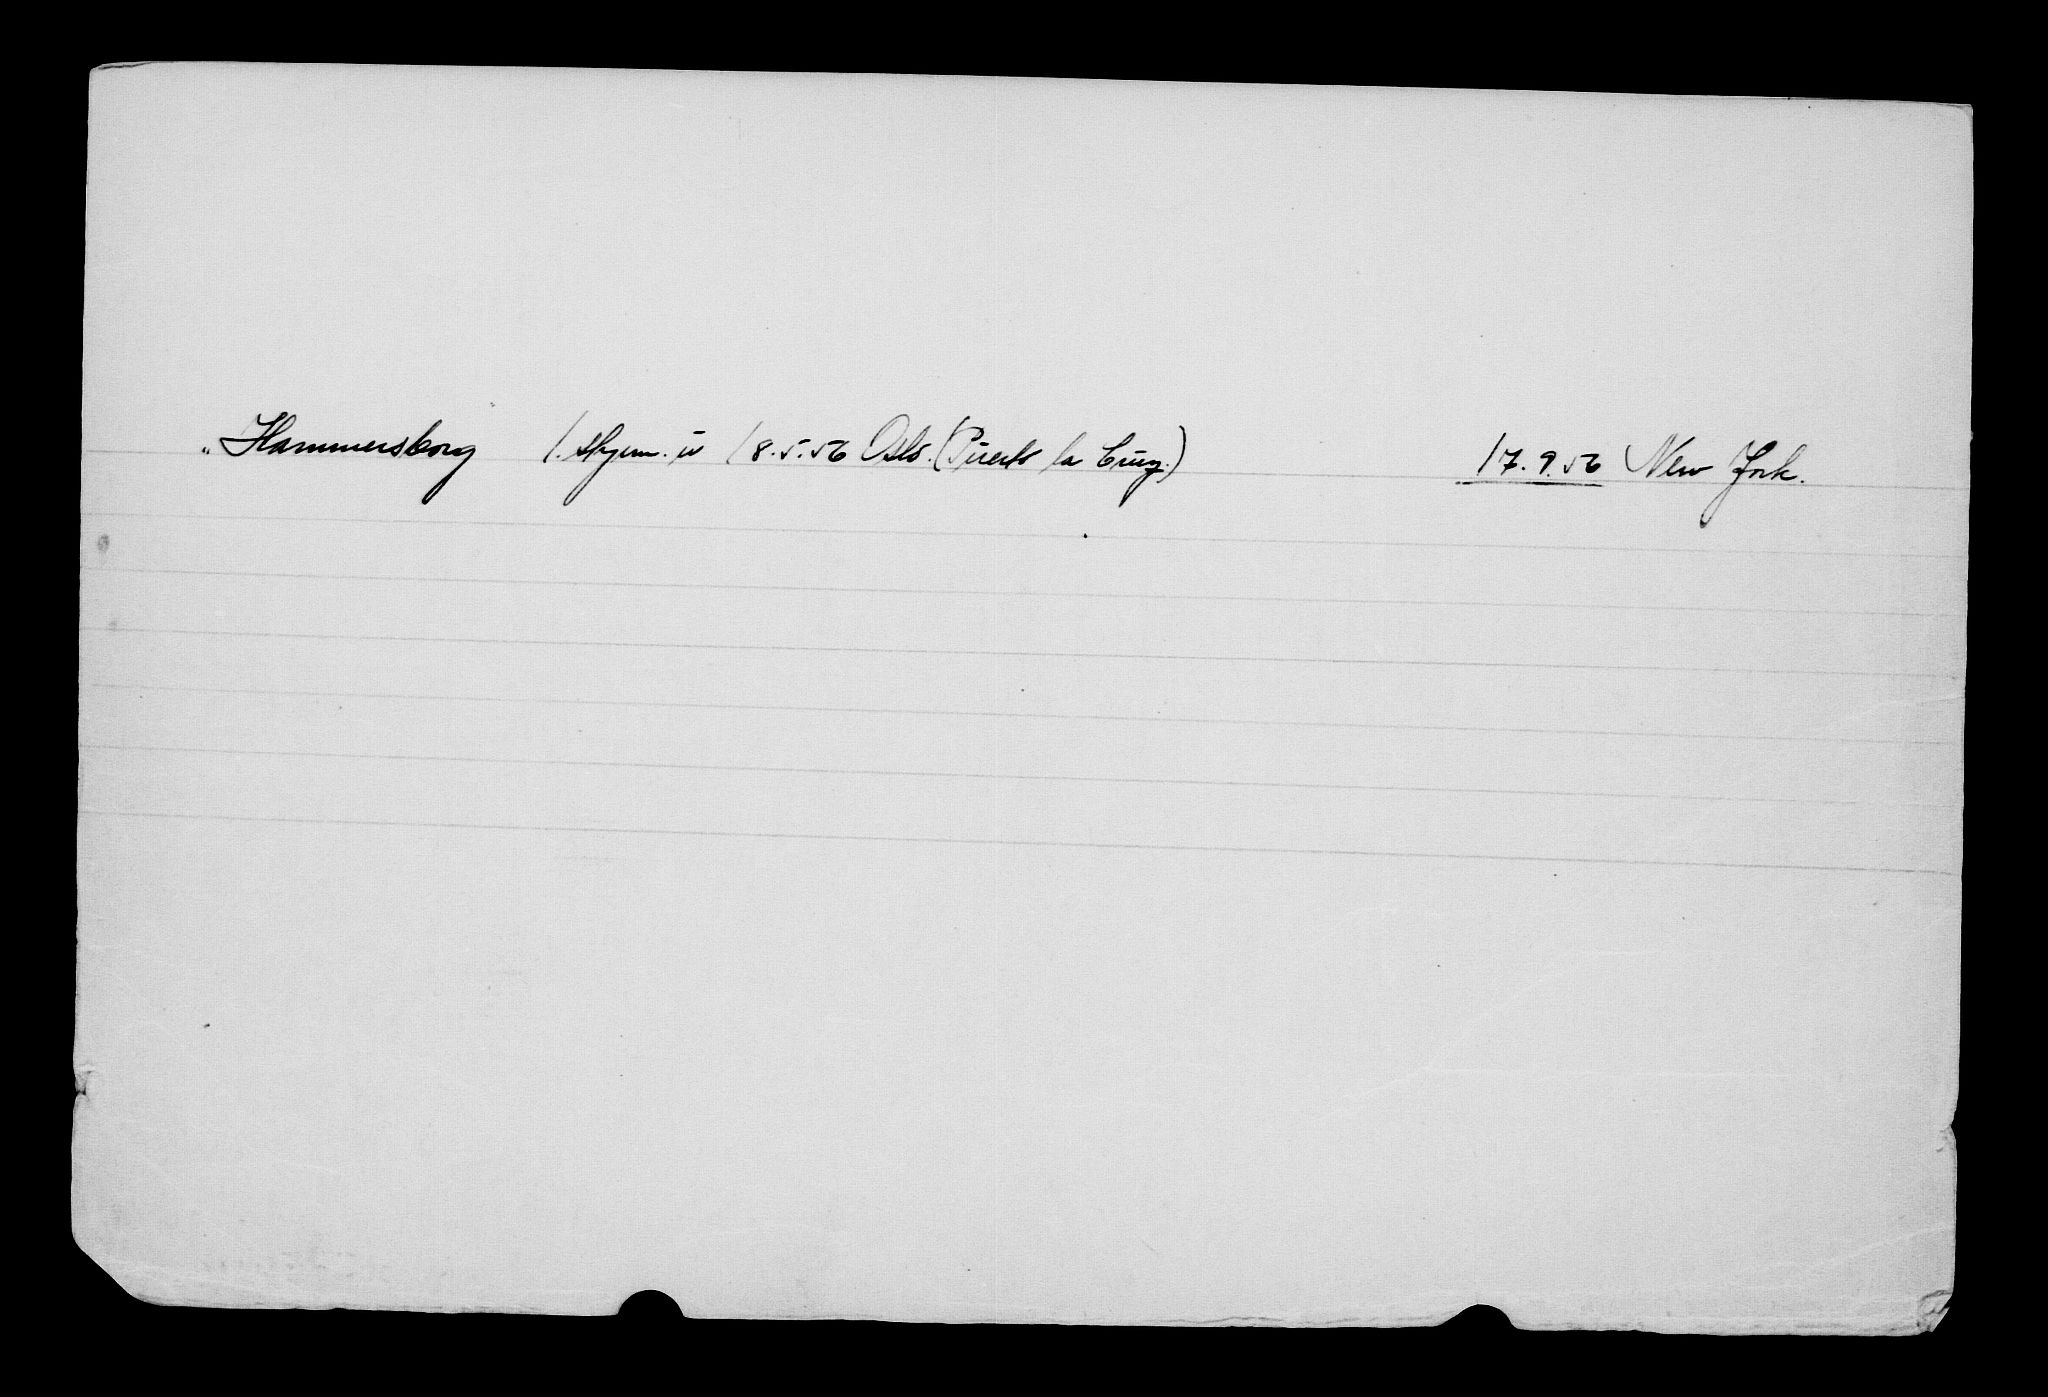 "Hammersborg" 1. styrm. is 18.5.56 Oslo. (Puerto la Cruz.) 17.9.56 New York.